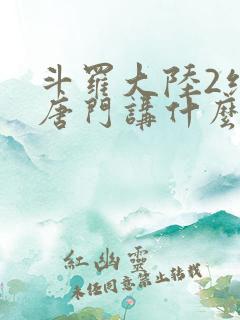 斗羅大陸2絕
唐門講什麼
紅幽靈
未經同意禁止轉載